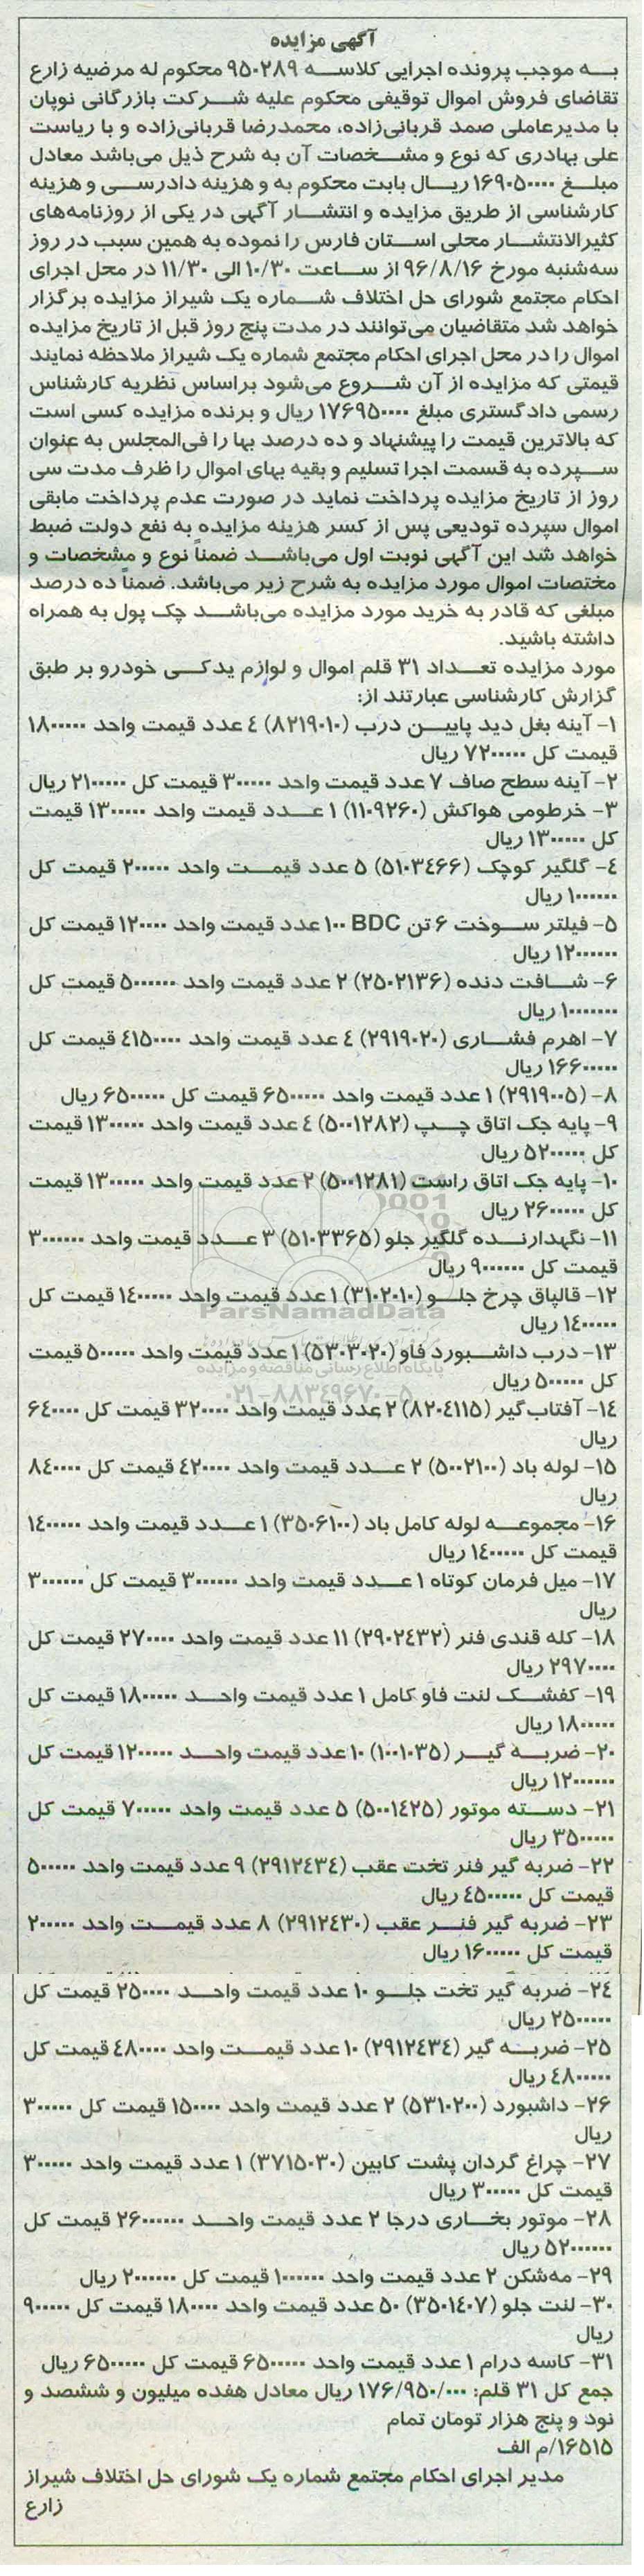 آگهی مزایده
بـــه موجب پرونده اجرایی کلاســـه ۹۵۰۲۸۹ محکوم له مرضیه زارع
تقاضای فروش اموال توقیفی محکوم علیه شـــرکت بازرگانی نوپان
با مدیرعاملی صمد قربانی‌زاده، محمدرضا قربانی‌زاده و با ریاست
علی بهادری که نوع و مشـــخصات آن به شرح ذیل می‌باشد معادل
مبلـــغ ۱۶۹۰۵۰۰۰۰ ریـــال بابت محکوم به و هزینه دادرســـی و هزینه
کارشناسی از طریق مزایده و انتشـــار آگهی در یکی از روزنامه‌های
کثیرالانتشـــار محلی اســـتان فارس را نموده به همین سبب در روز
سه‌شنبه مورخ ۹۶/۸/۱۶ از ســـاعت ۱۰/۳۰ الی ۱۱/۳۰ در محل اجرای
احکام مجتمع شورای حل اختلاف شـــماره یک شیراز مزایده برگزار
خواهد شد متقاضیان می‌توانند در مدت پنج روز قبل از تاریخ مزایده
اموال را در محل اجرای احکام مجتمع شماره یک شیراز ملاحظه نمایند
قیمتی که مزایده از آن شـــروع می‌شود براساس نظریه کارشناس
رسمی دادگستری مبلغ ۱۷۶۹۵۰۰۰۰ ریال و برنده مزایده کسی است
که بالاترین قیمت را پیشنهاد و ده درصد بها را فی‌المجلس به عنوان
ســـپرده به قسمت اجرا تسلیم و بقیه بهای اموال را ظرف مدت سی
روز از تاریخ مزایده پرداخت نماید در صورت عدم پرداخت مابقی
اموال سپرده تودیعی پس از کسر هزینه مزایده به نفع دولت ضبط
خواهد شد این آگهی نوبت اول می‌باشـــد ضمناً نوع و مشخصات و
مختصات اموال مورد مزایده به شرح زیر می‌باشد. ضمناً ده درصد
مبلغی که قادر به خرید مورد مزایده می‌باشـــد چک پول به همراه
داشته باشید.
مورد مزایده تعـــداد ۳۱ قلم اموال و لوازم یدکـــی خودرو بر طبق
گزارش کارشناسی عبارتند از:
۱- آینه بغل دید پایین درب (۸۲۱۹۰۱۰) ۴ عدد قیمت واحد ۱۸۰۰۰۰۰
قیمت کل ۷۲۰۰۰۰۰ ریال
۲- آینه سطح صاف ۷ عدد قیمت واحد ۳۰۰۰۰۰ قیمت کل ۲۱۰۰۰۰۰ ریال
۳- خرطومی هواکش (۱۱۰۹۲۶۰) ۱ عـــدد قیمت واحد ۱۳۰۰۰۰۰ قیمت
کل ۱۳۰۰۰۰۰ ریال
۴- گلگیر کوچک (۵۱۰۳۴۶۶) ۵ عدد قیمـــت واحد ۲۰۰۰۰۰ قیمت کل
۱۰۰۰۰۰۰ ریال
۵- فیلتر ســـوخت ۶ تن BDC ۱۰۰ عدد قیمت واحد ۱۲۰۰۰۰ قیمت کل
۱۲۰۰۰۰۰۰ ریال
۶- شـــافت دنده (۲۵۰۲۱۳۶) ۲ عدد قیمت واحد ۵۰۰۰۰۰۰ قیمت کل
۱۰۰۰۰۰۰۰ ریال
۷- اهرم فشـــاری (۲۹۱۹۰۲۰) ۴ عدد قیمت واحد ۴۱۵۰۰۰۰ قیمت کل
۱۶۶۰۰۰۰۰ ریال
۸- (۲۹۱۹۰۰۵) ۱ عدد قیمت واحد ۶۵۰۰۰۰۰ قیمت کل ۶۵۰۰۰۰۰ ریال
۹- پایه جک اتاق چـــپ (۵۰۰۱۲۸۲) ۴ عدد قیمت واحد ۱۳۰۰۰۰۰ قیمت
کل ۵۲۰۰۰۰۰ ریال
۱۰- پایه جک اتاق راست (۵۰۰۱۲۸۱) ۲ عدد قیمت واحد ۱۳۰۰۰۰۰ قیمت
کل ۲۶۰۰۰۰۰ ریال
۱۱- نگهدارنـــده گلگیر جلو (۵۱۰۳۳۶۵) ۳ عـــدد قیمت واحد ۳۰۰۰۰۰۰
قیمت کل ۹۰۰۰۰۰۰ ریال
۱۲- قالپاق چرخ جلـــو (۳۱۰۲۰۱۰) ۱ عدد قیمت واحد ۱۴۰۰۰۰۰ قیمت کل
۱۴۰۰۰۰۰ ریال
ParsNamadData
۱۳- درب داشـــبورد فاو (۵۳۰۳۰۲۰) ۱ عدد قیمت واحد ۵۰۰۰۰۰ قیمت
کل ۵۰۰۰۰۰ ریال
پایگاه اطلاع رسانی مناقصه و مزایده
۰۲۱-۸۸۳۴۹۶۷۰-۵
۱۴- آفتاب گیر (۸۲۰۴۱۱۵) ۲ عدد قیمت واحد ۳۲۰۰۰۰ قیمت کل ۶۴۰۰۰۰
ریال
۱۵- لوله باد (۵۰۰۲۱۰۰) ۲ عـــدد قیمت واحد ۴۲۰۰۰۰ قیمت کل ۸۴۰۰۰۰
ریال
۱۶- مجموعـــه لوله کامل باد (۳۵۰۶۱۰۰) ۱ عـــدد قیمت واحد ۱۴۰۰۰۰۰
قیمت کل ۱۴۰۰۰۰۰ ریال
۱۷- میل فرمان کوتاه ۱ عـــدد قیمت واحد ۳۰۰۰۰۰۰ قیمت کل ۳۰۰۰۰۰۰
ریال
۱۸- کله قندی فنر (۲۹۰۲۴۳۲) ۱۱ عدد قیمت واحد ۲۷۰۰۰۰ قیمت کل
۲۹۷۰۰۰۰ ریال
۱۹- کفشـــک لنت فاو کامل ۱ عدد قیمت واحـــد ۱۸۰۰۰۰۰ قیمت کل
۱۸۰۰۰۰۰ ریال
۲۰- ضربـــه گیـــر (۱۰۰۱۰۳۵) ۱۰ عدد قیمت واحـــد ۱۲۰۰۰۰۰ قیمت کل
۱۲۰۰۰۰۰۰ ریال
۲۱- دســـته موتور (۵۰۰۱۴۲۵) ۵ عدد قیمت واحد ۷۰۰۰۰۰ قیمت کل
۳۵۰۰۰۰۰ ریال
۲۲- ضربه گیر فنر تخت عقب (۲۹۱۲۴۳۴) ۹ عدد قیمت واحد ۵۰۰۰۰۰
قیمت کل ۴۵۰۰۰۰۰ ریال
۲۳- ضربه گیر فنـــر عقب (۲۹۱۲۴۳۰) ۸ عدد قیمـــت واحد ۲۰۰۰۰۰
قیمت کل ۱۶۰۰۰۰۰ ریال
۲۴- ضربه گیر تخت جلـــو ۱۰ عدد قیمت واحـــد ۲۵۰۰۰۰ قیمت کل
۲۵۰۰۰۰۰ ریال
۲۵- ضربـــه گیر (۲۹۱۲۴۳۴) ۱۰ عدد قیمـــت واحد ۴۸۰۰۰۰ قیمت کل
۴۸۰۰۰۰۰ ریال
۲۶- داشبورد (۵۳۱۰۲۰۰) ۲ عدد قیمت واحد ۱۵۰۰۰۰ قیمت کل ۳۰۰۰۰۰
ریال
۲۷- چراغ گردان پشت کابین (۳۷۱۵۰۳۰) ۱ عدد قیمت واحد ۳۰۰۰۰۰
قیمت کل ۳۰۰۰۰۰ ریال
۲۸- موتور بخـــاری درجا ۲ عدد قیمت واحـــد ۲۶۰۰۰۰۰۰ قیمت کل
۵۲۰۰۰۰۰۰ ریال
۲۹- مه‌شکن ۲ عدد قیمت واحد ۱۰۰۰۰۰۰ قیمت کل ۲۰۰۰۰۰۰ ریال
۳۰- لنت جلو (۳۵۰۱۴۰۷) ۵۰ عدد قیمت واحد ۱۸۰۰۰۰ قیمت کل ۹۰۰۰۰۰
ریال
۳۱- کاسه درام ۱ عدد قیمت واحد ۶۵۰۰۰۰۰ قیمت کل ۶۵۰۰۰۰۰ ریال
جمع کل ۳۱ قلم: ۱۷۶/۹۵۰/۰۰۰ ریال معادل هفده میلیون و ششصد و
نود و پنج هزار تومان تمام
۱۶۵۱۵/م الف
مدیر اجرای احکام مجتمع شماره یک شورای حل اختلاف شیراز
زارع